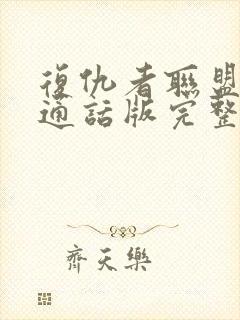 復仇者聯盟
通話版完整
齊天樂